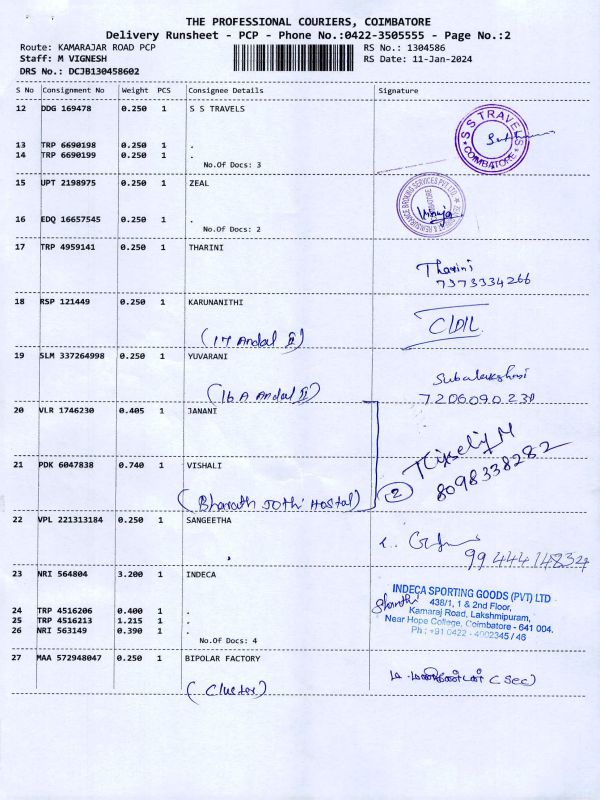 THE PROFESSIONAL COURIERS, COIMBATORE
Delivery Runsheet - PCP - Phone No.:0422-3505555 - Page No.:2
Route: KAMARAJAR ROAD PCP
RS No.: 1304586
Staff: M VIGNESH
RS Date: 11-Jan-2024
DRS No.: DCJB130458602
S No Consignment No Weight PCS Consignee Details Signature
12 DDG 169478 0.250 1 S S TRAVELS
S S TRAVELS
COIMBATORE
13 TRP 6690198 0.250 1 .
14 TRP 6690199 0.250 1 .
No.Of Docs: 3
15 UPT 2198975 0.250 1 ZEAL
16 EDQ 16657545 0.250 1 .
No.Of Docs: 2
17 TRP 4959141 0.250 1 THARINI
Tharini
7373334266
18 RSP 121449 0.250 1 KARUNANITHI
(17 Andal II)
19 SLM 337264998 0.250 1 YUVARANI
Subalakshmi
(16 A Andal II)
20 VLR 1746230 0.405 1 JANANI
21 PDK 6047838 0.740 1 VISHALI
8098338282
(Bharath Jothi Hostal)
2
22 VPL 221313184 0.250 1 SANGEETHA
23 NRI 564804 3.200 1 INDECA
INDECA SPORTING GOODS (PVT) LTD
438/1, 1 & 2nd Floor,
Kamaraj Road, Lakshmipuram,
Near Hope College, Coimbatore - 641 004.
Ph : +91 0422 - 4002345 / 46
24 TRP 4516206 0.400 1 .
25 TRP 4516213 1.215 1 .
26 NRI 563149 0.390 1 .
No.Of Docs: 4
27 MAA 572948047 0.250 1 BIPOLAR FACTORY
(Sec)
(Cluster)